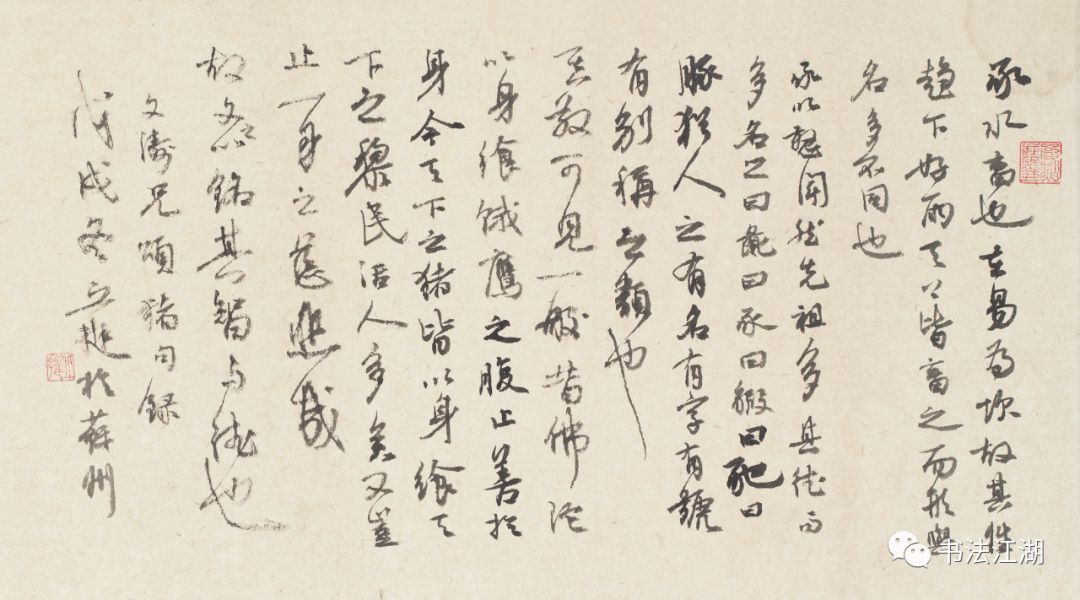 豕水畜也在易为坎故其性
趋下好雨天下皆畜之而形与
名多不同也
豕以懿闻然先祖多其德而
多名之曰彘曰豕曰豭曰豝曰
豚犹人之有名有字有號
有别稱之類也
可見一般昔佛陀
以身飨饿鹰之腹止善於
身今天下之猪皆以身飨天
下之黎民活人多矣又岂
止一身之慈悲哉
故名铭其曰与德也
文涛兄颂猪句録
戊戌冬立趣於蘇州
书法江湖